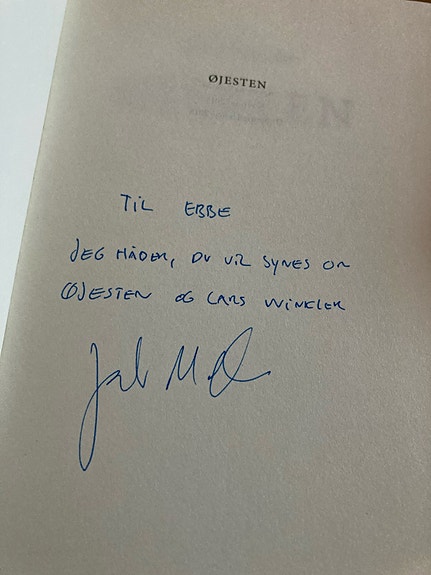 ØJESTEN
TIL EBBE
JEG HÅBER, DU VIL SYNES OM
ØJESTEN OG LARS WINKLER